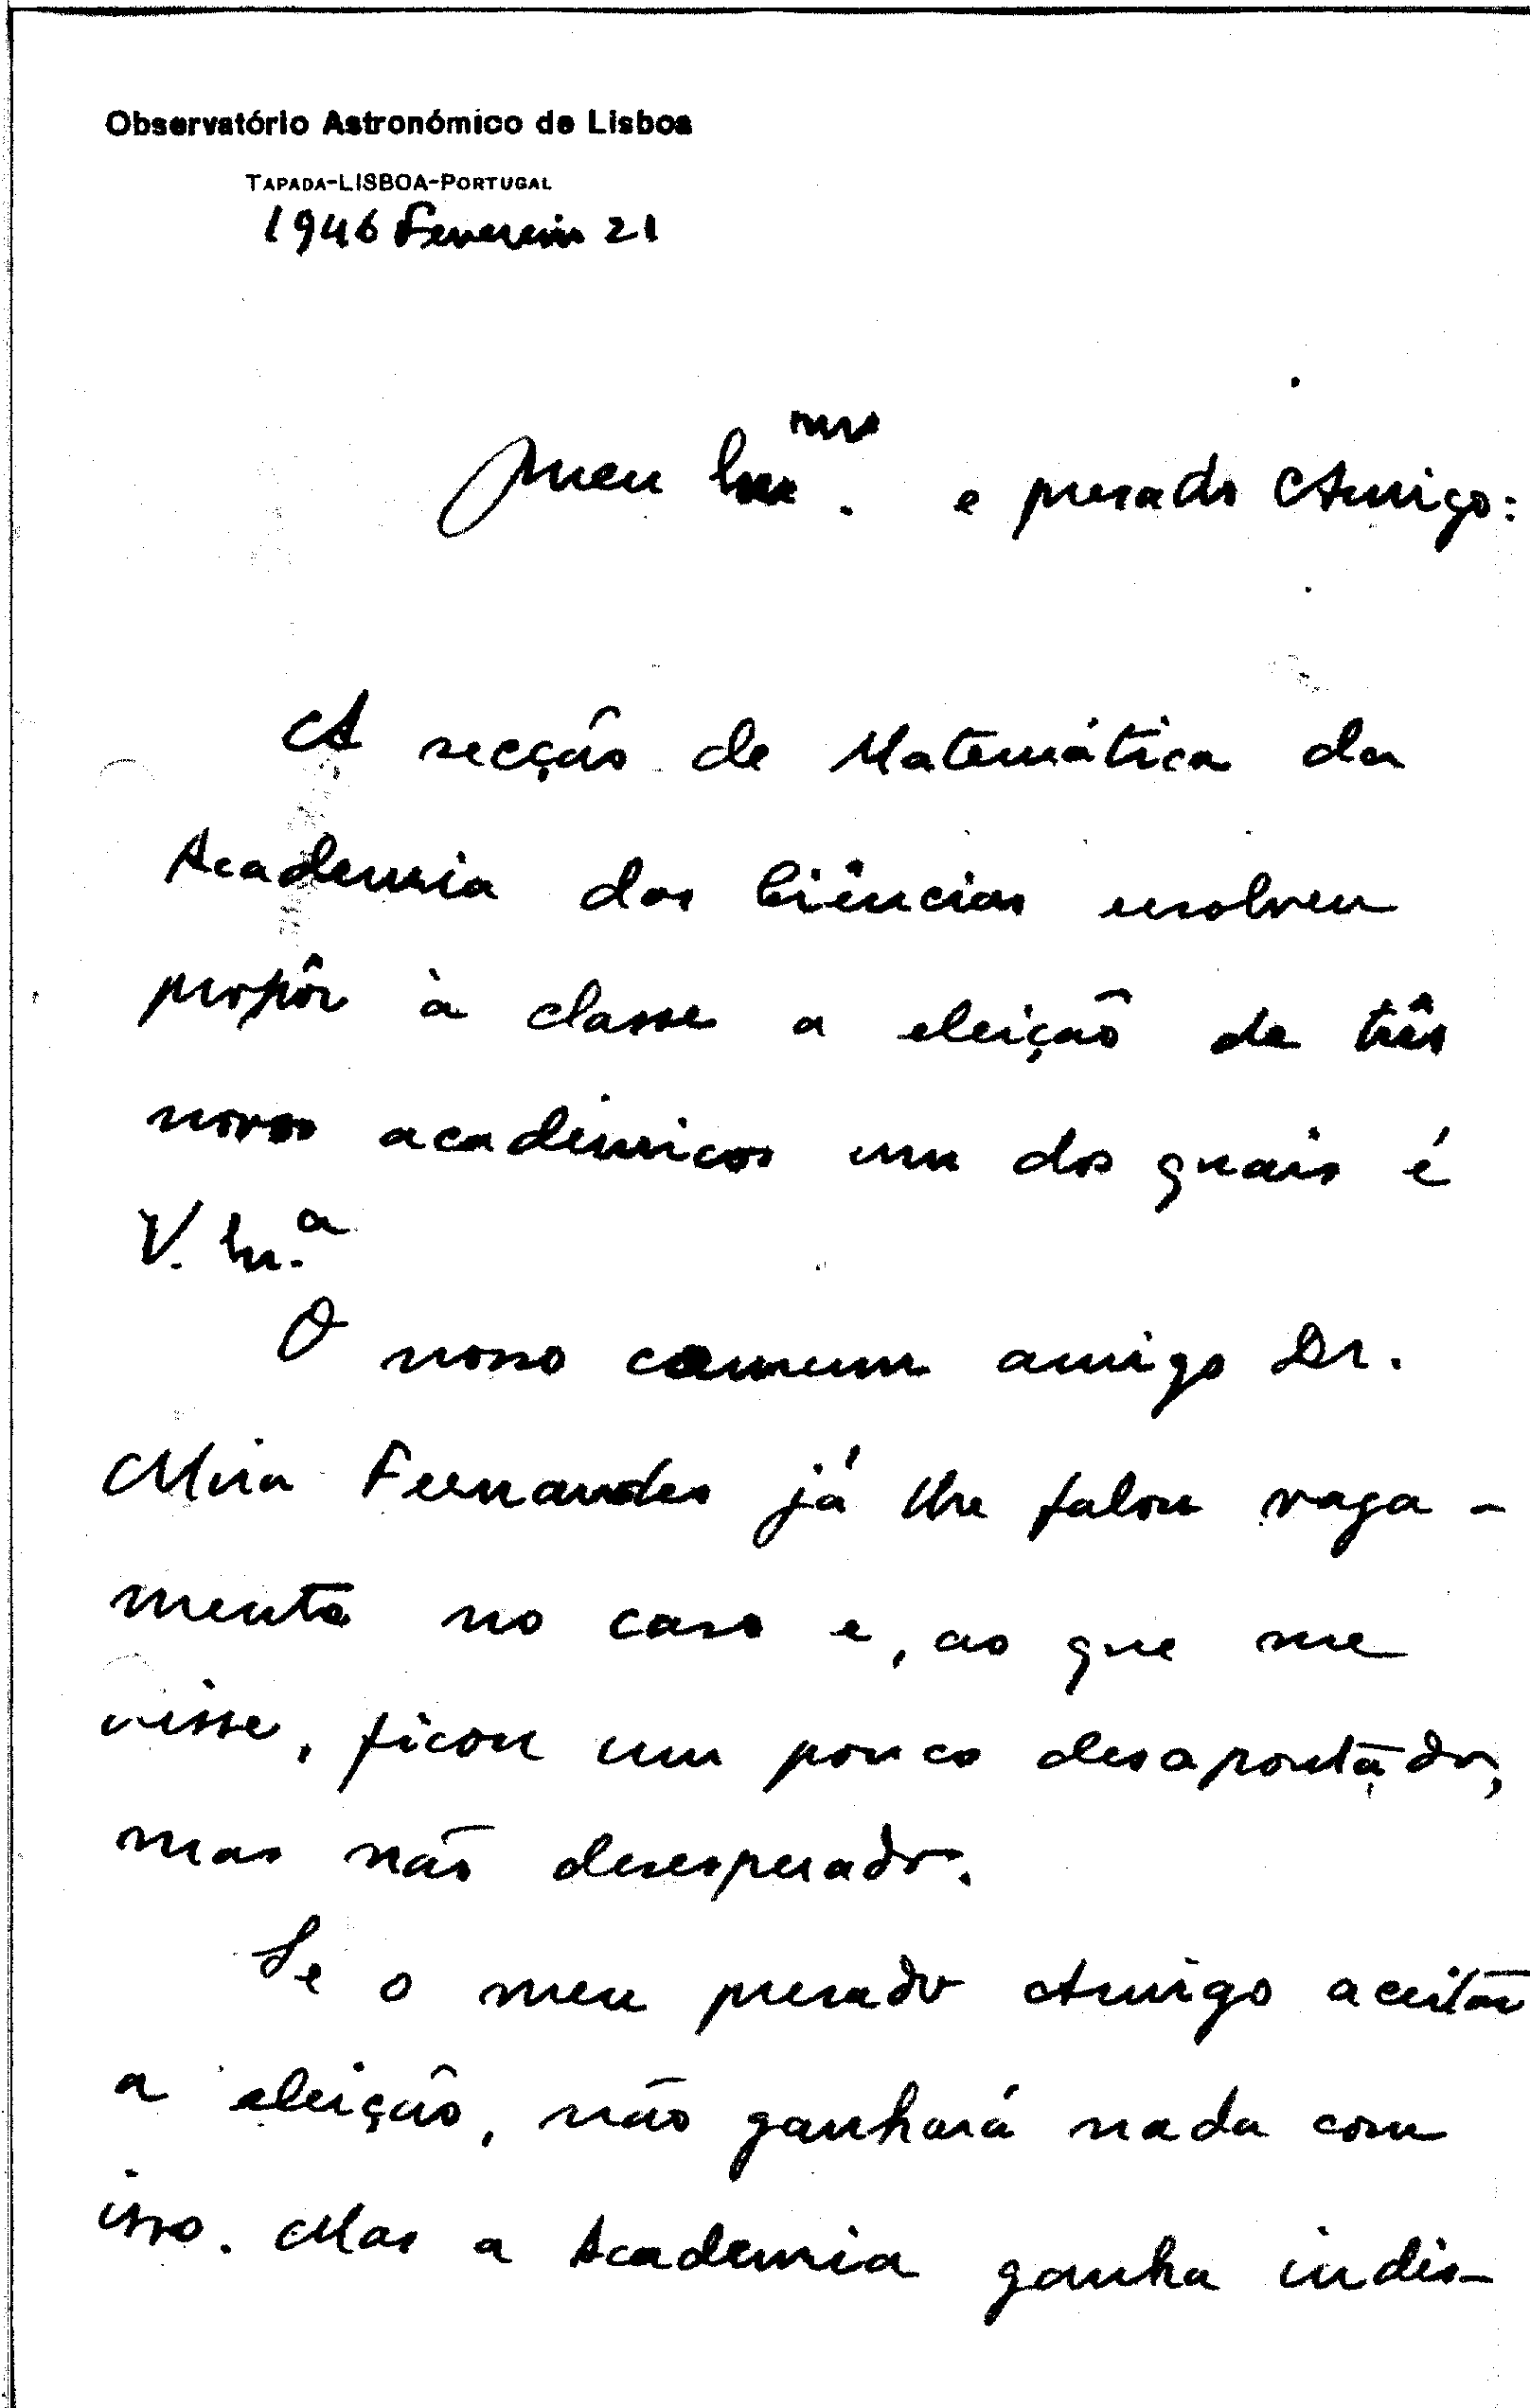 Observatório Astronómico de Lisboa
TAPADA-LISBOA-PORTUGAL
1946 Fevereiro 21
Meu Exmo. e prezado Amigo:
A secção de Matemática da
Academia das Ciências resolveu
propôr à classe a eleição de três
novos académicos um dos quais é
V. Ex.a
O nosso comum amigo Dr.
Mira Fernandes já lhe falou vaga-
mente no caso e, ao que me
disse, ficou um pouco desapontado,
mas não desesperado.
Se o meu prezado Amigo aceitar
a eleição, não ganhará nada com
isso. Mas a Academia ganha indis-